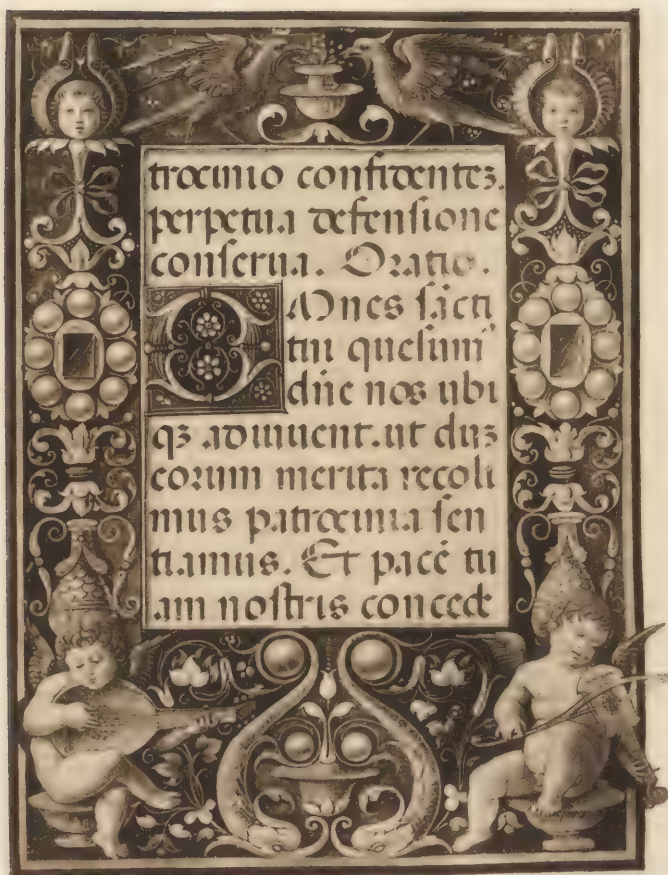 trocinio confidentes.
perpetua defensione
conserua. Oratio.
OMnes sācti
tui quesum᾽
dñe nos ubi
qꝫ adiuuent. ut duꝫ
eorum merita recoli
mus patrocinia sen
tiamus. Et pacē tu
am nostris concede